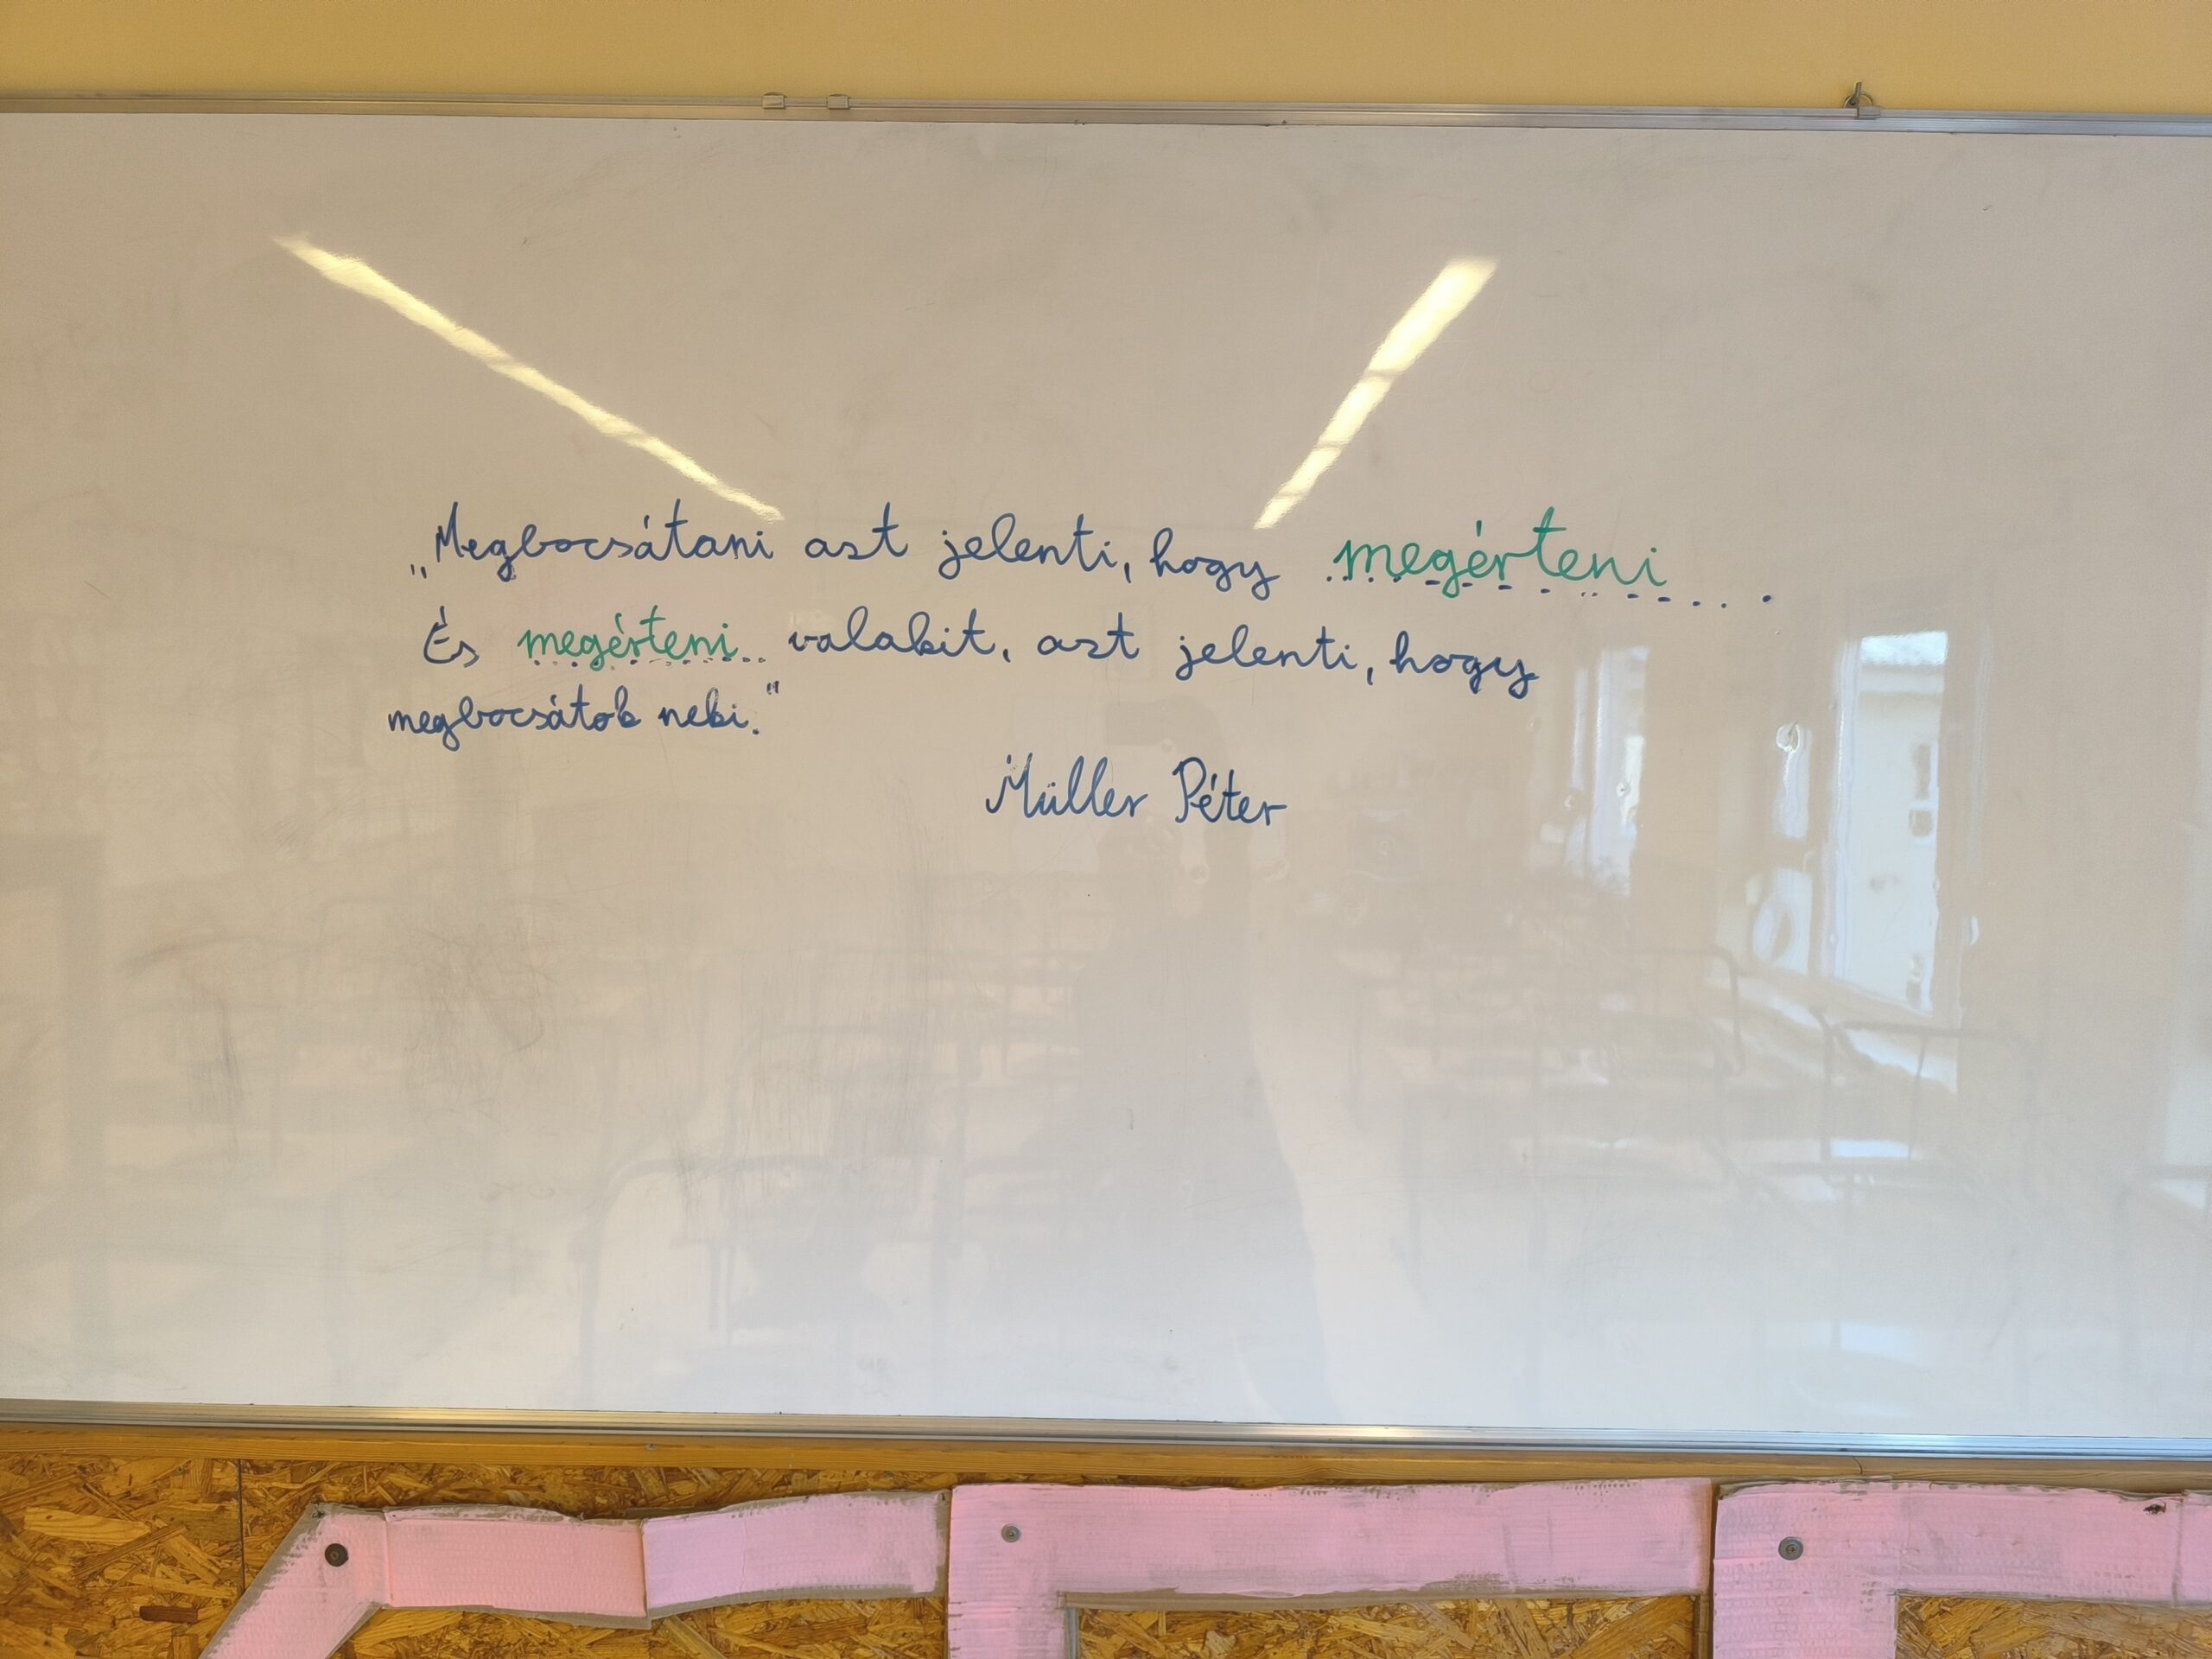 „Megbocsátani azt jelenti, hogy megérteni.
És megérteni valakit, azt jelenti, hogy
megbocsátok neki."
Müller Péter